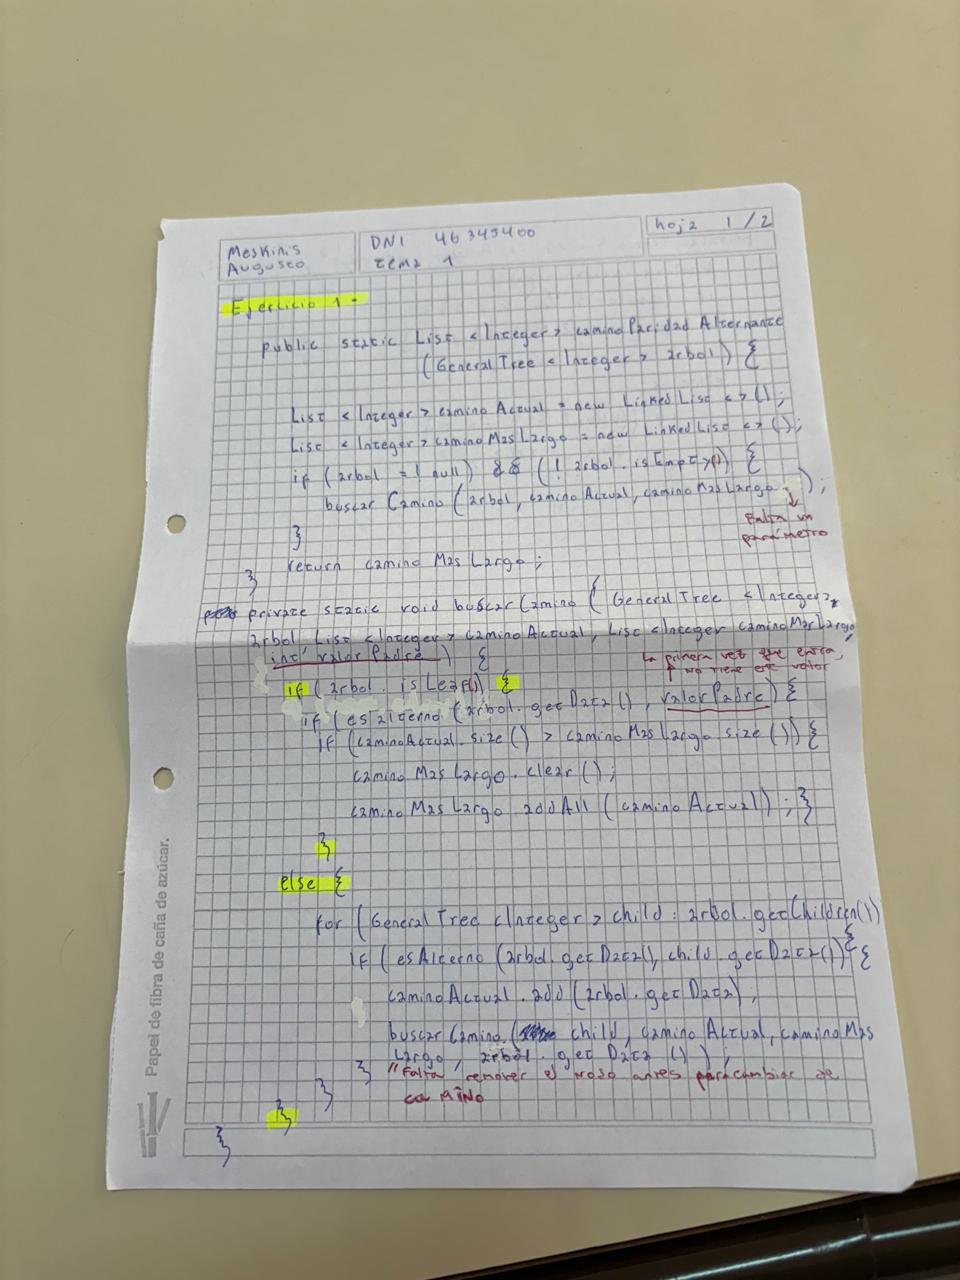 Meskinis
Augusto
DNI 46345400
tema 1
hoja 1/2
Ejercicio 1-
public static List <Integer> caminoParidad Alternante
(General Tree <Integer> arbol) {
List <Integer> camino Actual = new Linked List <>();
List <Integer> camino Mas Largo = new Linked List <>();
if (arbol =! null) && (! arbol.isEmpty()) {
buscar Camino (arbol, camino Actual, camino Mas Largo );
Falta un
parámetro
}
return camino Mas Largo;
}
private static void buscar Camino ( General Tree <Integer>
arbol List <Integer> camino Actual, List <Integer camino Mas Largo,
int valor Padre ) {
La primera vez que entra,
no tiene ese valor
if (arbol. is Leaf()) {
if (es alterno (arbol. get Data (), valor Padre) {
if (camino Actual. size () > camino Mas Largo size ()) {
camino Mas Largo. clear ();
camino Mas Largo addAll (camino Actual); }
}
else {
for (General Tree <Integer> child : arbol. get Children())
{
if (es Alterno (arbol. get Data(), child. get Data()) {
camino Actual. add (arbol. get Data);
buscar Camino ( child, camino Actual, camino Mas
Largo, arbol. get Data () );
} "Falta remover el nodo antes para cambiar de
camino
}
}
}
Papel de fibra de caña de azúcar.